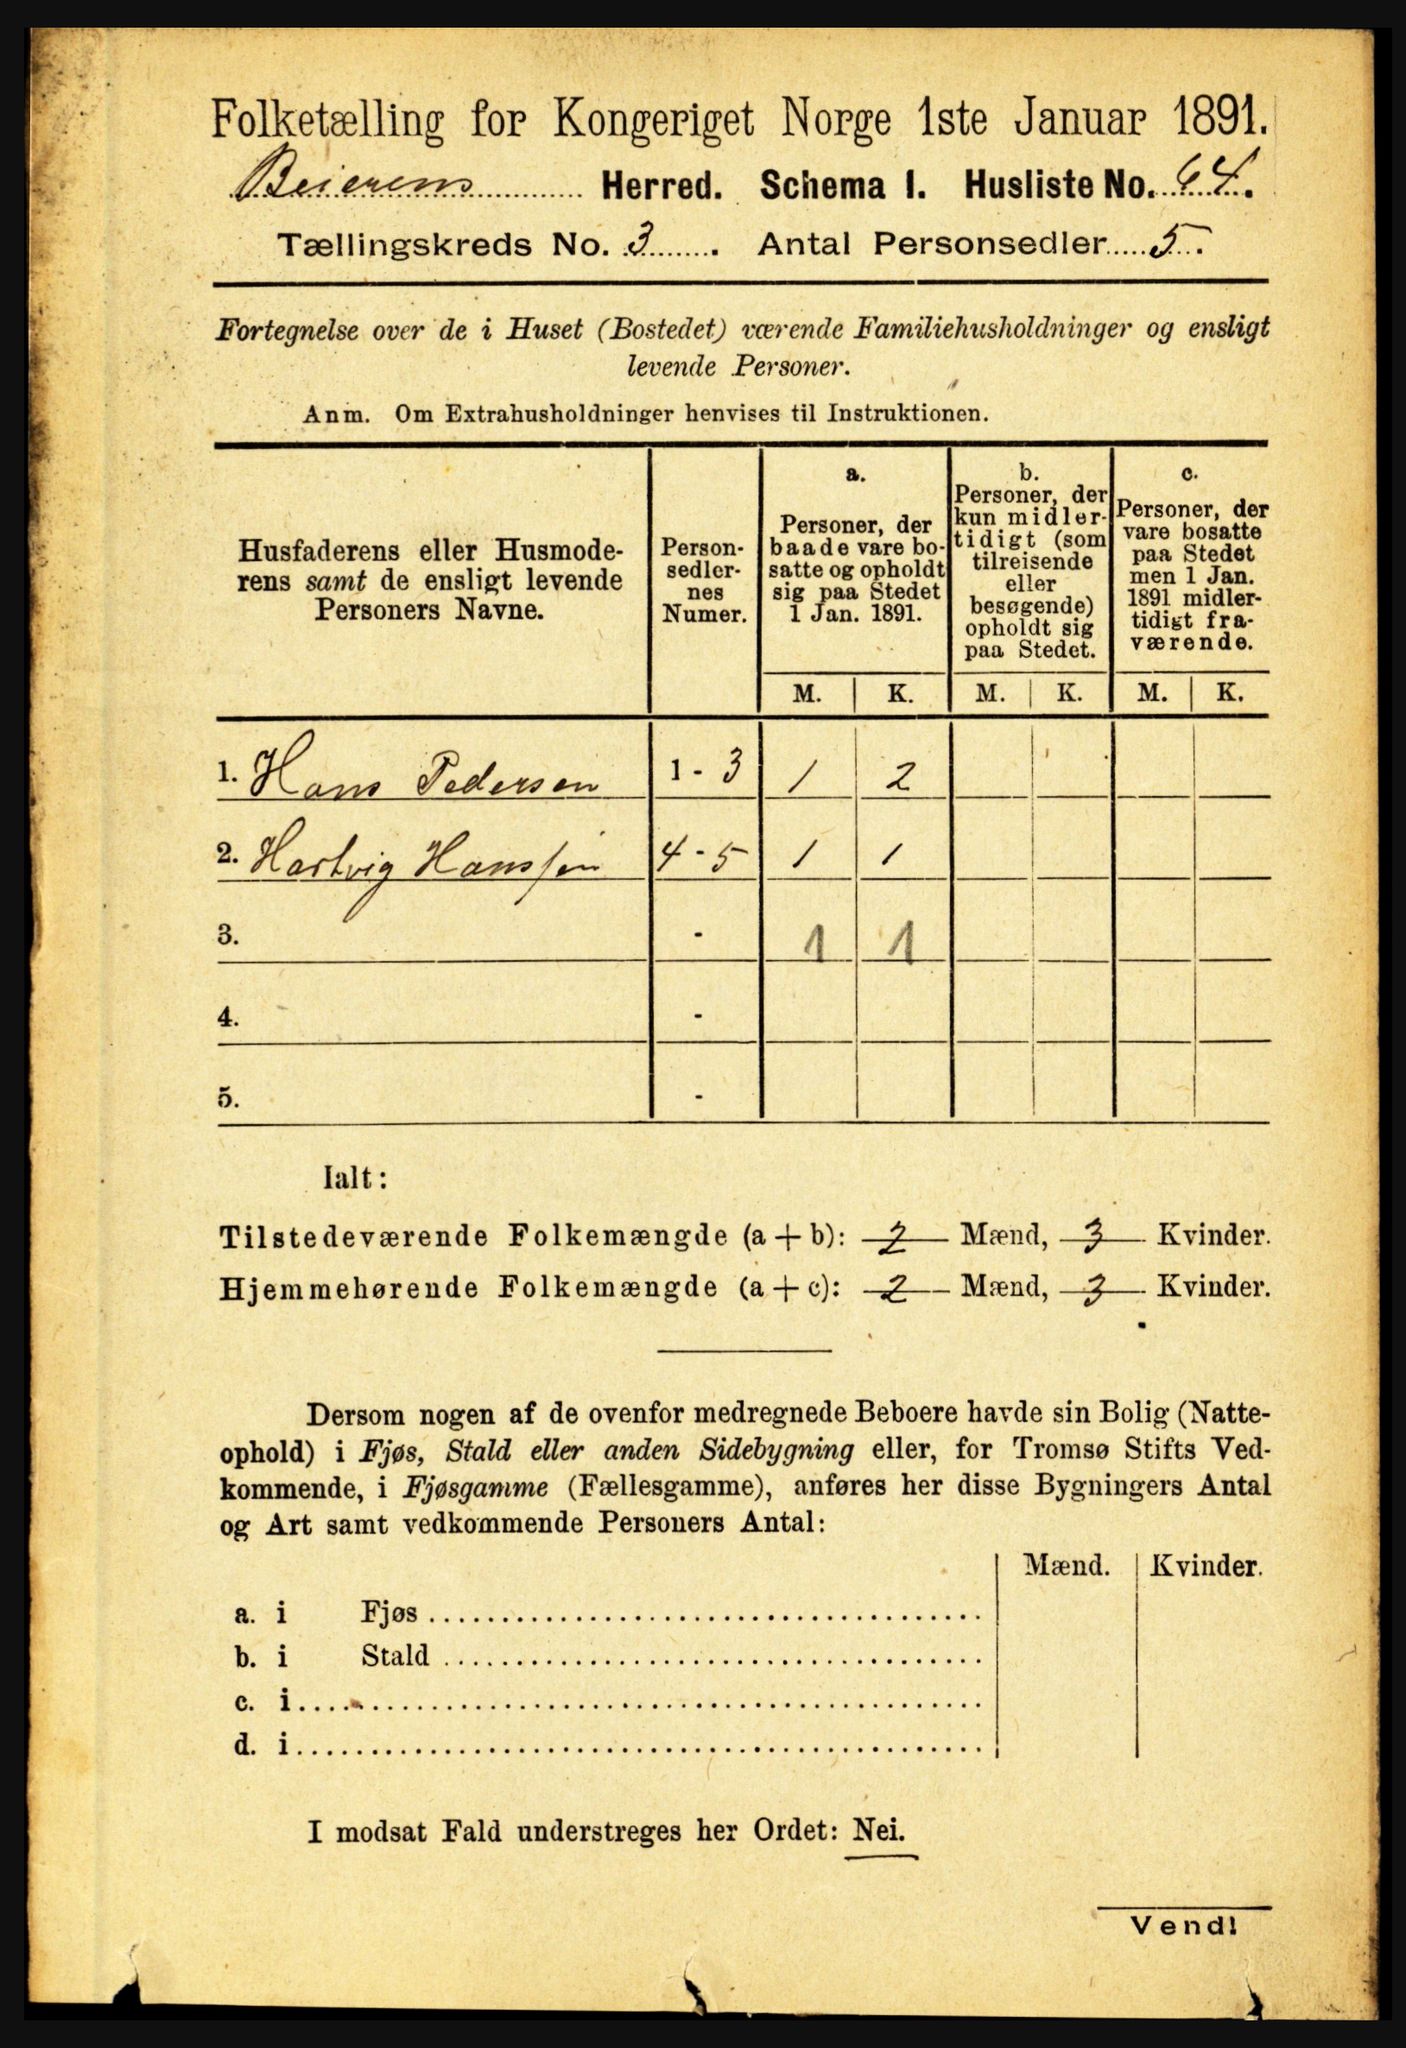 Folketælling for Kongeriget Norge 1ste Januar 1891.
Beierens Herred. Schema I. Husliste No. 64.
Tællingskreds No. 3. Antal Personsedler 5.
Fortegnelse over de i Huset (Bostedet) værende Familiehusholdninger og ensligt
levende Personer.
Anm. Om Extrahusholdninger henvises til Instruktionen.
Husfaderens eller Husmode-
rens samt de ensligt levende
Personers Navne.
Person-
sedler-
nes
Numer.
a.
Personer, der
baade vare bo-
satte og opholdt
sig paa Stedet
1 Jan. 1891.
b.
Personer, der
kun midler-
tidigt (som
tilreisende
eller
besøgende)
opholdt sig
paa Stedet.
c.
Personer, der
vare bosatte
paa Stedet
men 1 Jan.
1891 midler-
tidigt fra-
værende.
M. K. M. K. M. K.
1. Hans Pedersen 1 - 3 1 2
2. Hartvig Hanssen 4 - 5 1 1
3. - 1 1
4. -
5. -
Ialt:
Tilstedeværende Folkemængde (a + b): 2 Mænd, 3 Kvinder.
Hjemmehørende Folkemængde (a + c): 2 Mænd, 3 Kvinder.
Dersom nogen af de ovenfor medregnede Beboere havde sin Bolig (Natte-
ophold) i Fjøs, Stald eller anden Sidebygning eller, for Tromsø Stifts Ved-
kommende, i Fjøsgamme (Fællesgamme), anføres her disse Bygningers Antal
og Art samt vedkommende Personers Antal:
Mænd. Kvinder.
a. i Fjøs
b. i Stald
c. i
d. i
I modsat Fald understreges her Ordet: Nei.
Vend!